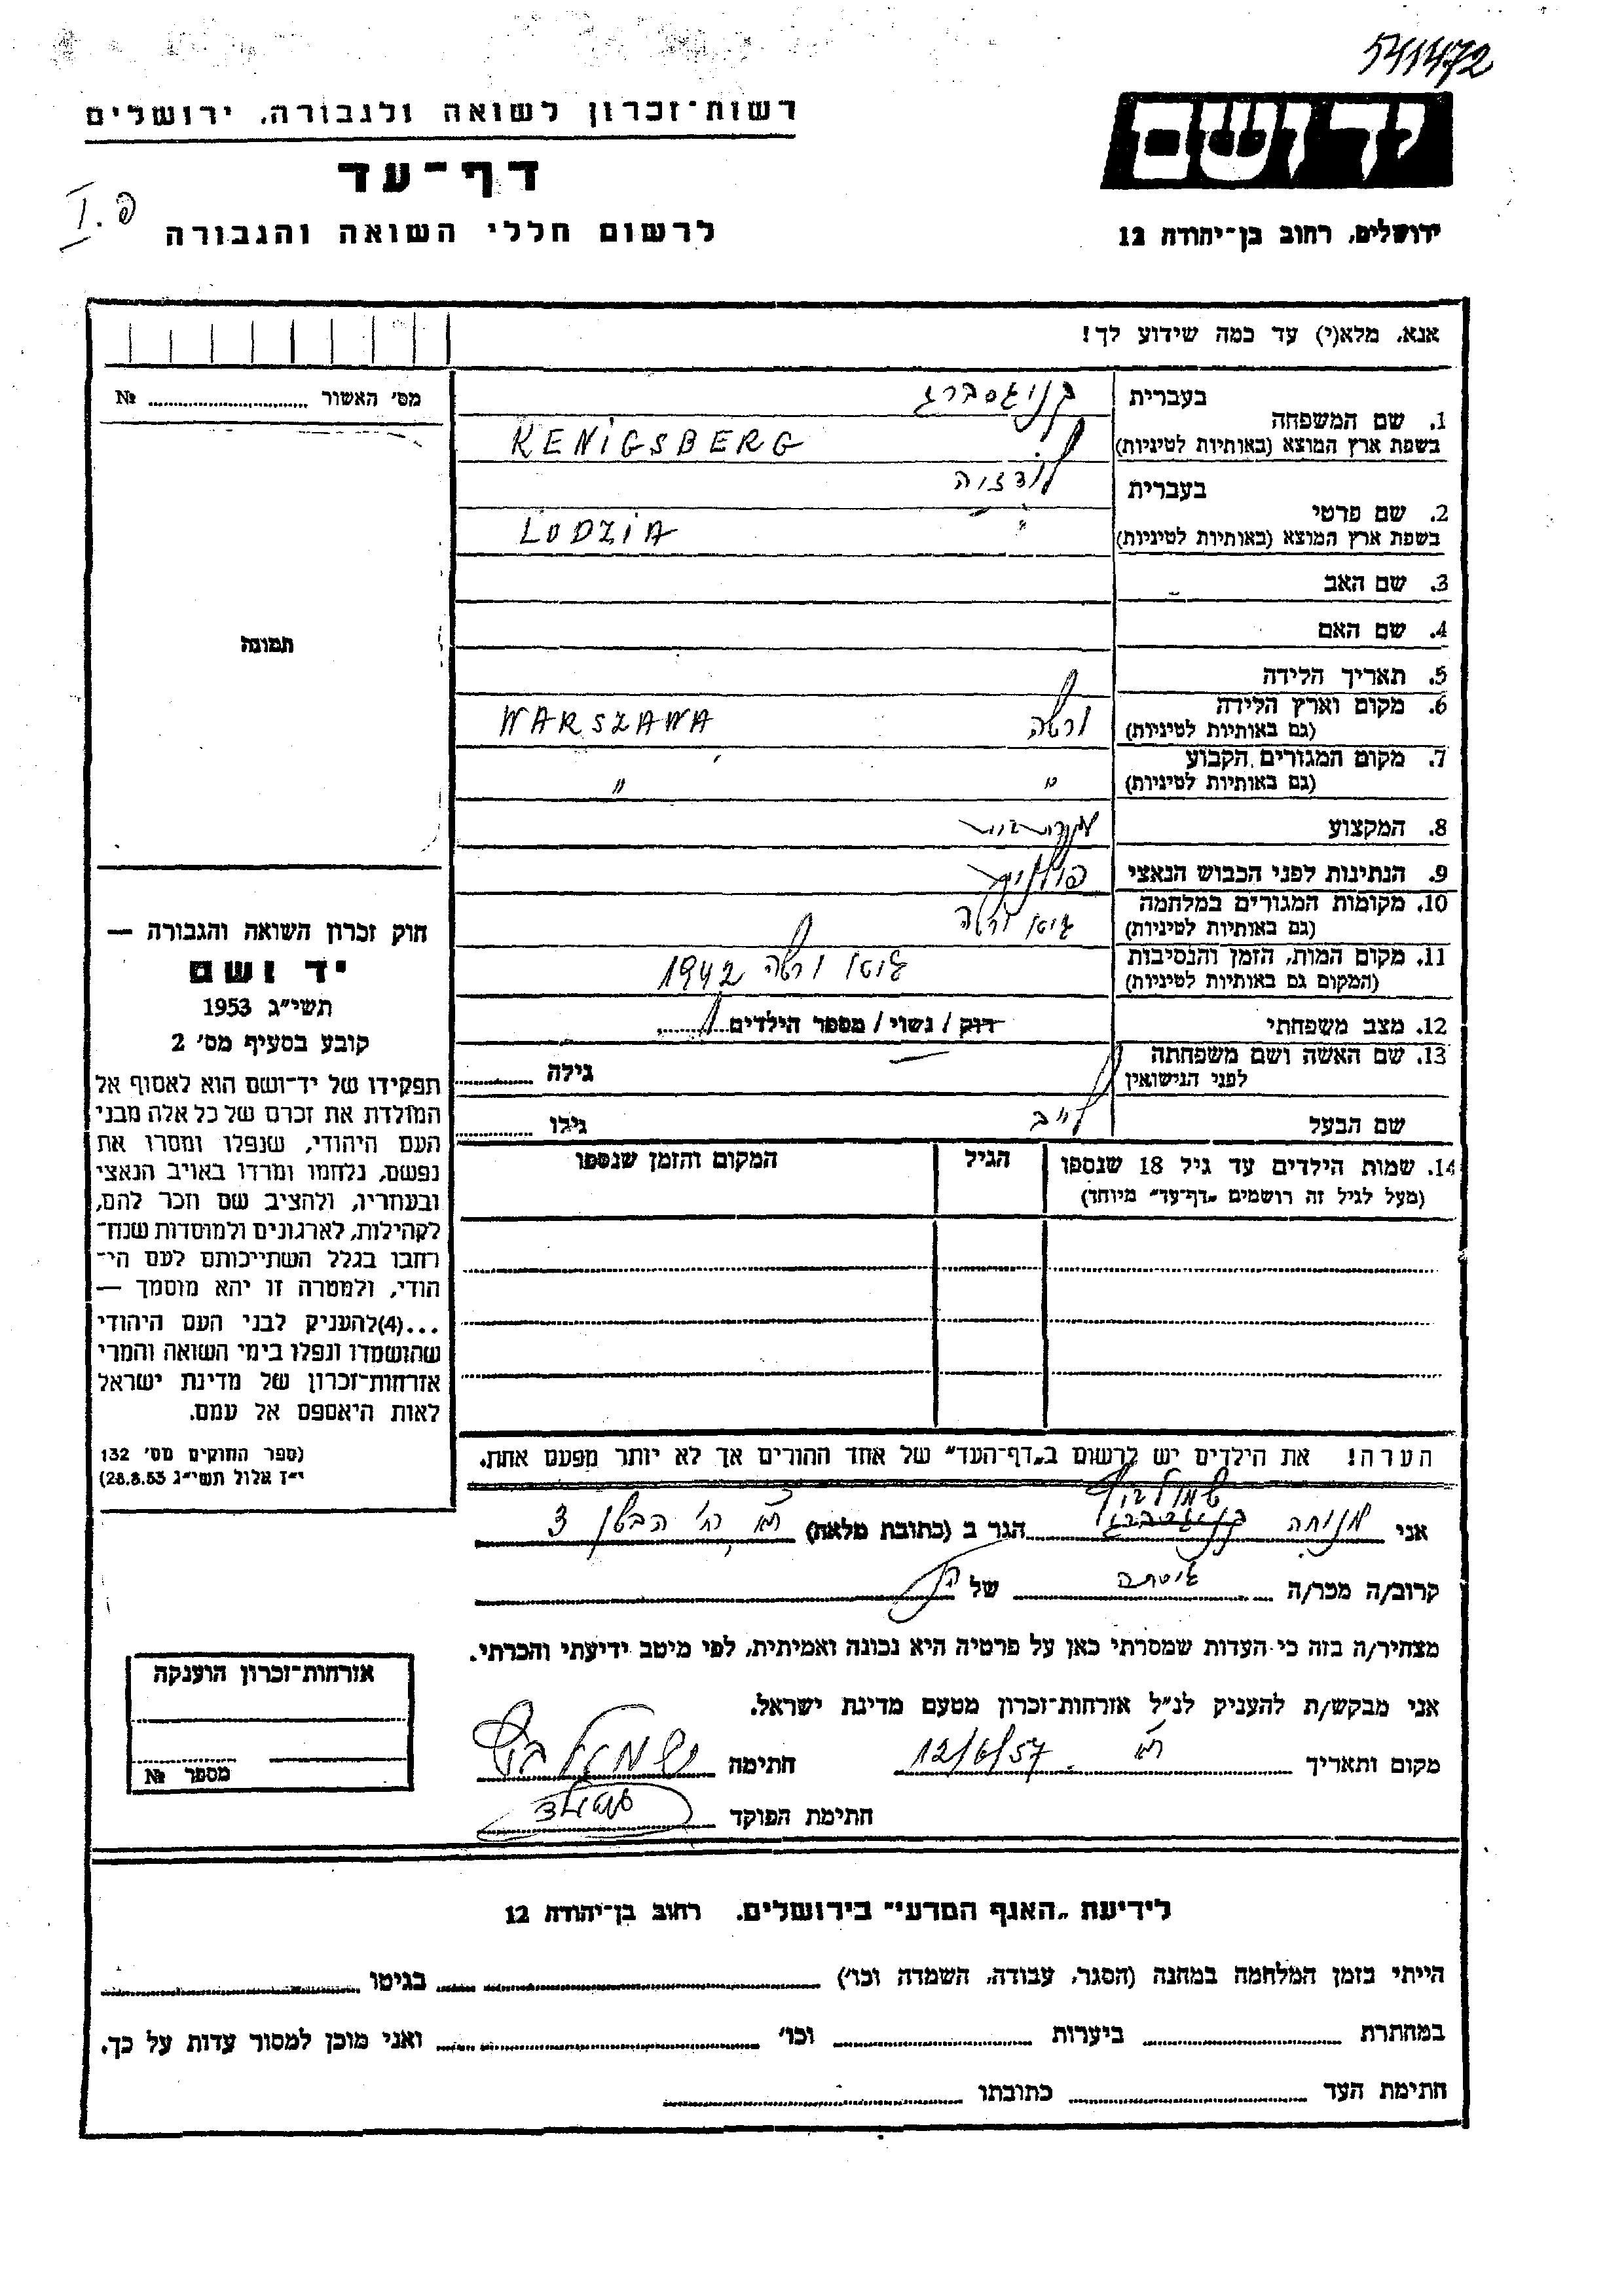 541472
יד ושם
רשות־זכרון לשואה ולגבורה, ירושלים
דף־עד
לרשום חללי השואה והגבורה
ירושלים, רחוב בן־יהודה 12
אנא, מלא(י) עד כמה שידוע לך!
מס' האשור № ........
1. שם המשפחה
בעברית
קניגסברג
בשפת ארץ המוצא (באותיות לטיניות)
KENIGSBERG
2. שם פרטי
בעברית
לודזיה
בשפת ארץ המוצא (באותיות לטיניות)
LUDZIA
3. שם האב
4. שם האם
תמונה
5. תאריך הלידה
6. מקום וארץ הלידה
(גם באותיות לטיניות)
ורשה WARSZAWA
7. מקום המגורים הקבוע
(גם באותיות לטיניות)
" "
8. המקצוע
9. הנתינות לפני הכבוש הנאצי
פולנית
10. מקומות המגורים במלחמה
(גם באותיות לטיניות)
גיטו ורשה
11. מקום המות, הזמן והנסיבות
(המקום גם באותיות לטיניות)
גיטו ורשה 1942
12. מצב משפחתי
רוק / נשוי / מספר הילדים ........
13. שם האשה ושם משפחתה
לפני הנישואין
גילה ........
שם הבעל
לייב
גילו ........
14. שמות הילדים עד גיל 18 שנספו
(מעל לגיל זה רושמים „דף־עד" מיוחד)
הגיל
המקום והזמן שנספו
חוק זכרון השואה והגבורה —
יד ושם
תשי"ג 1953
קובע בסעיף מס' 2
תפקידו של יד־ושם הוא לאסוף אל
המולדת את זכרם של כל אלה מבני
העם היהודי, שנפלו ומסרו את
נפשם, נלחמו ומרדו באויב הנאצי
ובעוזריו, ולהציב שם וזכר להם,
לקהילות, לארגונים ולמוסדות שנח־
רבו בגלל השתייכותם לעם הי־
הודי, ולמטרה זו יהא מוסמך —
...(4)להעניק לבני העם היהודי
שהושמדו ונפלו בימי השואה והמרי
אזרחות־זכרון של מדינת ישראל
לאות היאספם אל עמם.
(ספר החוקים מס' 132
י"ז אלול תשי"ג 28.8.53)
הערה! את הילדים יש לרשום ב„דף־העד" של אחד ההורים אך לא יותר מפעם אחת.
אני מנוחה קניגסברג הגר ב (כתובת מלאה) ת"א רח' הבשן 3
קרוב/ה מכר/ה גיסתה של
מצהיר/ה בזה כי העדות שמסרתי כאן על פרטיה היא נכונה ואמיתית, לפי מיטב ידיעתי והכרתי.
אני מבקש/ת להעניק לנ"ל אזרחות־זכרון מטעם מדינת ישראל.
מקום ותאריך ת"א 12/6/57 חתימה
חתימת הפוקד
אזרחות־זכרון הוענקה
מספר №
לידיעת „האגף המדעי" בירושלים, רחוב בן־יהודה 12
הייתי בזמן המלחמה במחנה (הסגר, עבודה, השמדה וכו') ........ בגיטו ........
במחתרת ........ ביערות ........ וכו' ........ ואני מוכן למסור עדות על כך.
חתימת העד ........ כתובתו ........